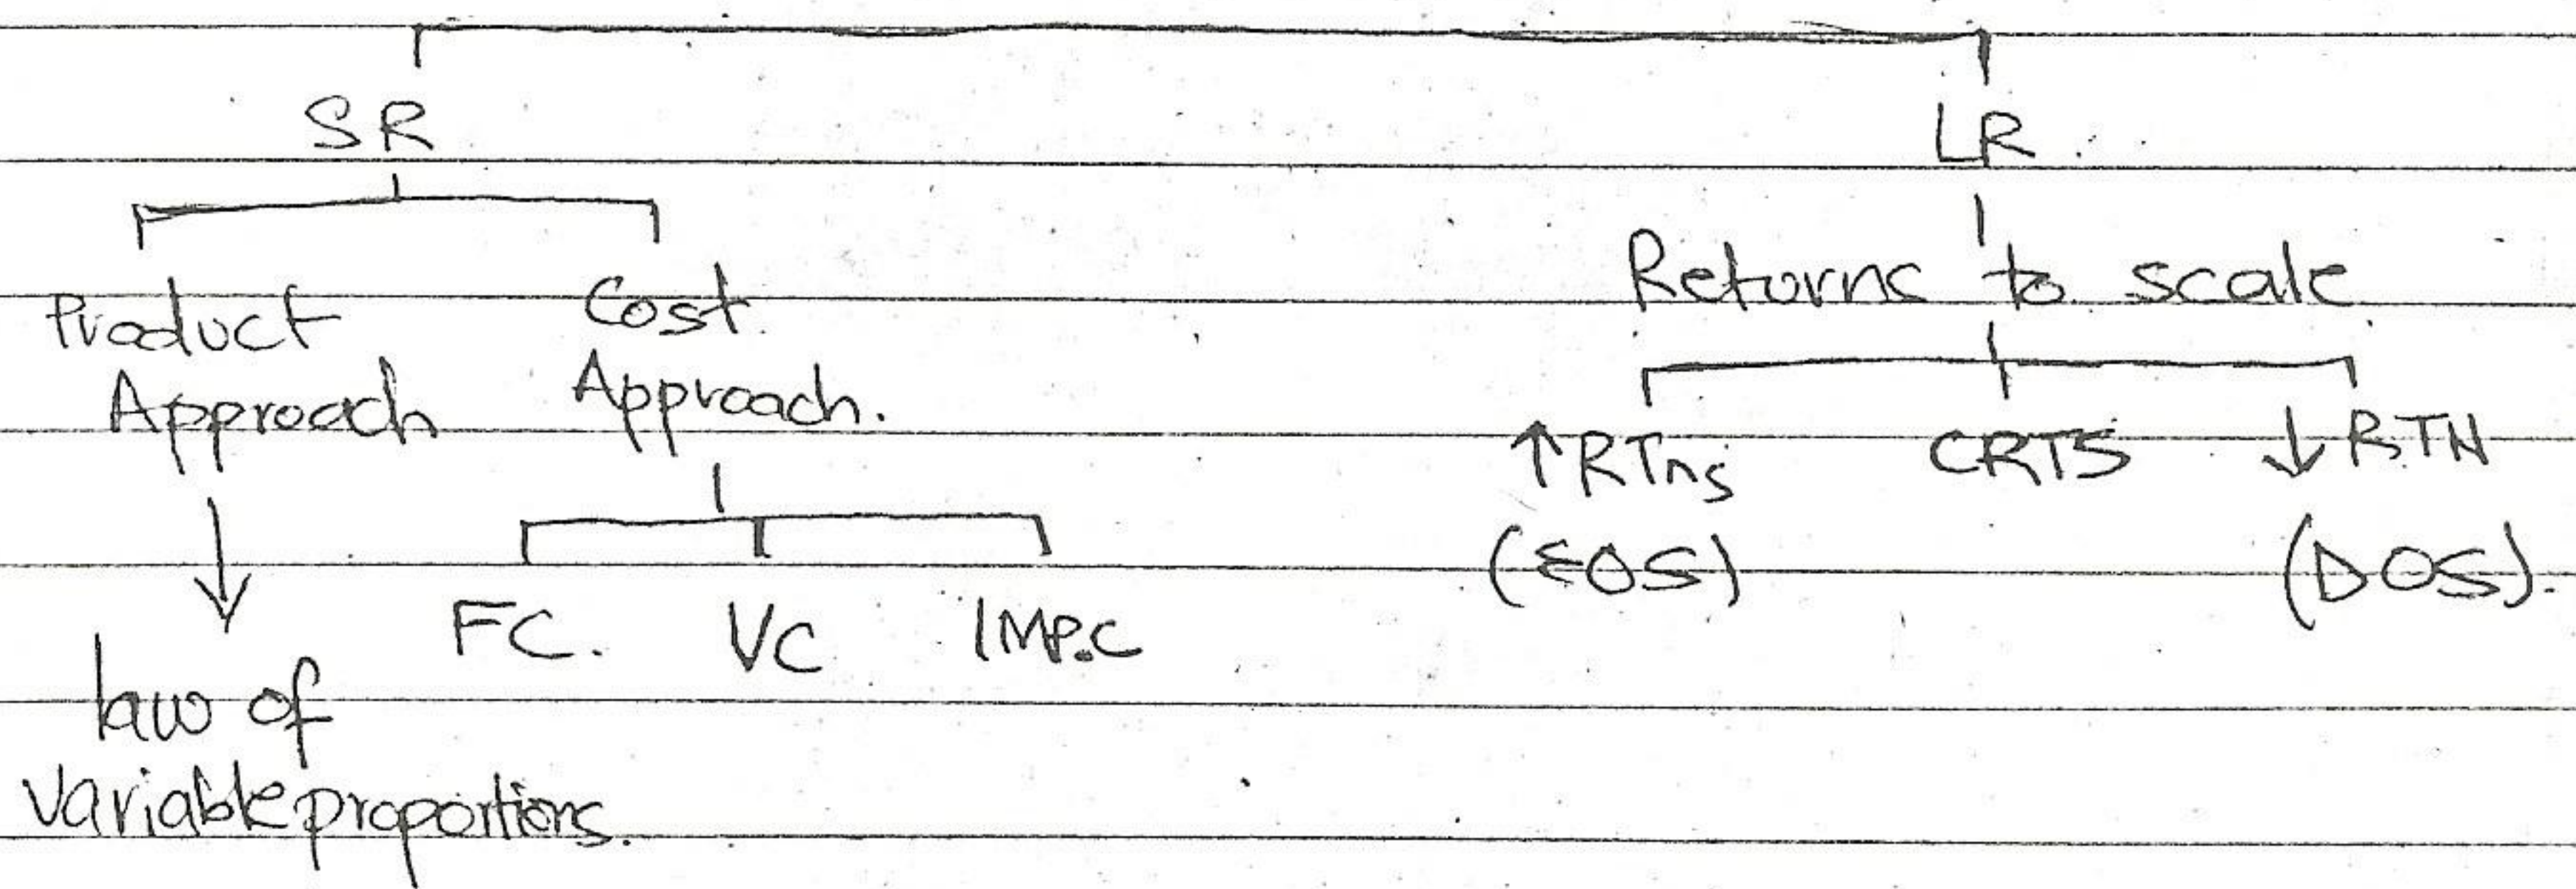 SR
LR
Product
Approach
Cost
Approach.
Returns to scale
↑ RTns
(EOS)
CRTS
↓ RTN
(DOS).
FC.
VC
IMP.C
law of
variable proportions.